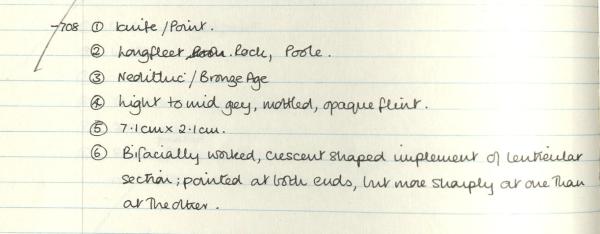 -708 ① Knife/Point.
② Longfleet, Rock, Poole.
③ Neolithic/Bronze Age
④ Light to mid grey, mottled, opaque flint.
⑤ 7.1cm x 2.1cm.
⑥ Bifacially worked, crescent shaped implement of lenticular
section; pointed at both ends, but more sharply at one than
at the other.